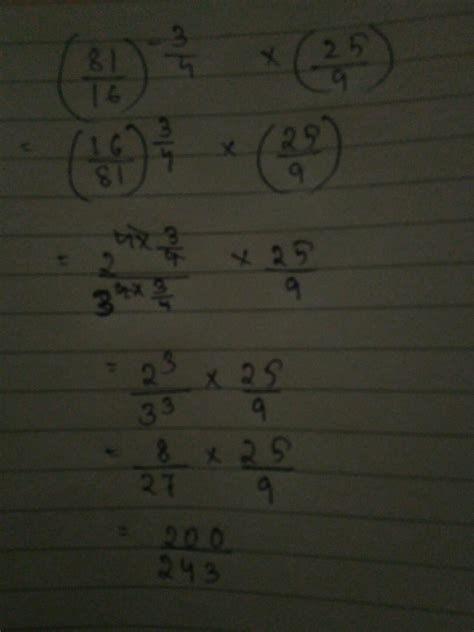 (81/16)^-3/4 × (25/9)
= (16/81)^3/4 × (25/9)
= 2^4×3/4 / 3^4×3/4 × 25/9
= 2^3/3^3 × 25/9
= 8/27 × 25/9
= 200/243